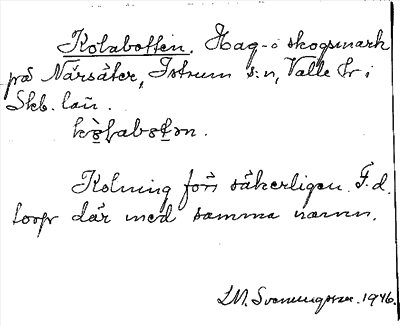 Kolabotten. Hag- i skogsmark
på Närsäter, Istrum s:n, Valle hr i
Skb. län.
Kolning förr säkerligen. F. d.
torp där med samma namn.
1946.